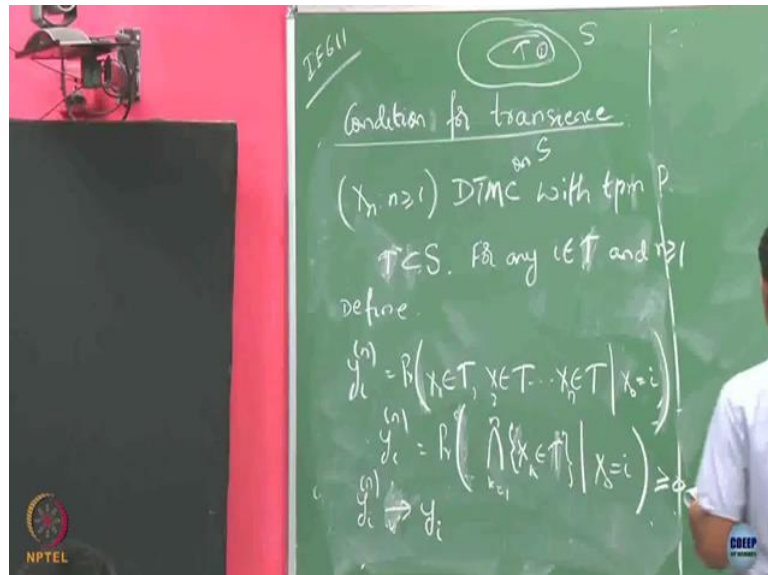 IE611
T i S
Condition for transience
on S
(Xₙ, n≥1) DTMC with tpm P.
T⊂S. For any i∈T and n≥1
Define.
yᵢ⁽ⁿ⁾ = Pr(X₁∈T, X₂∈T...Xₙ∈T | X₀=i)
yᵢ⁽ⁿ⁾ = Pr(⋂ₖ₌₁ⁿ {Xₖ∈T} | X₀=i) ≥0
yᵢ⁽ⁿ⁾ → yᵢ
NPTEL
CDEEP
IIT BOMBAY